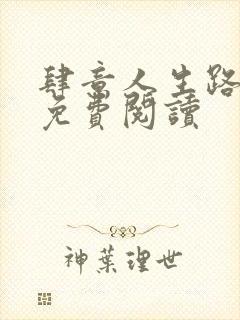 肆意人生路
免費閱讀
神葉理世